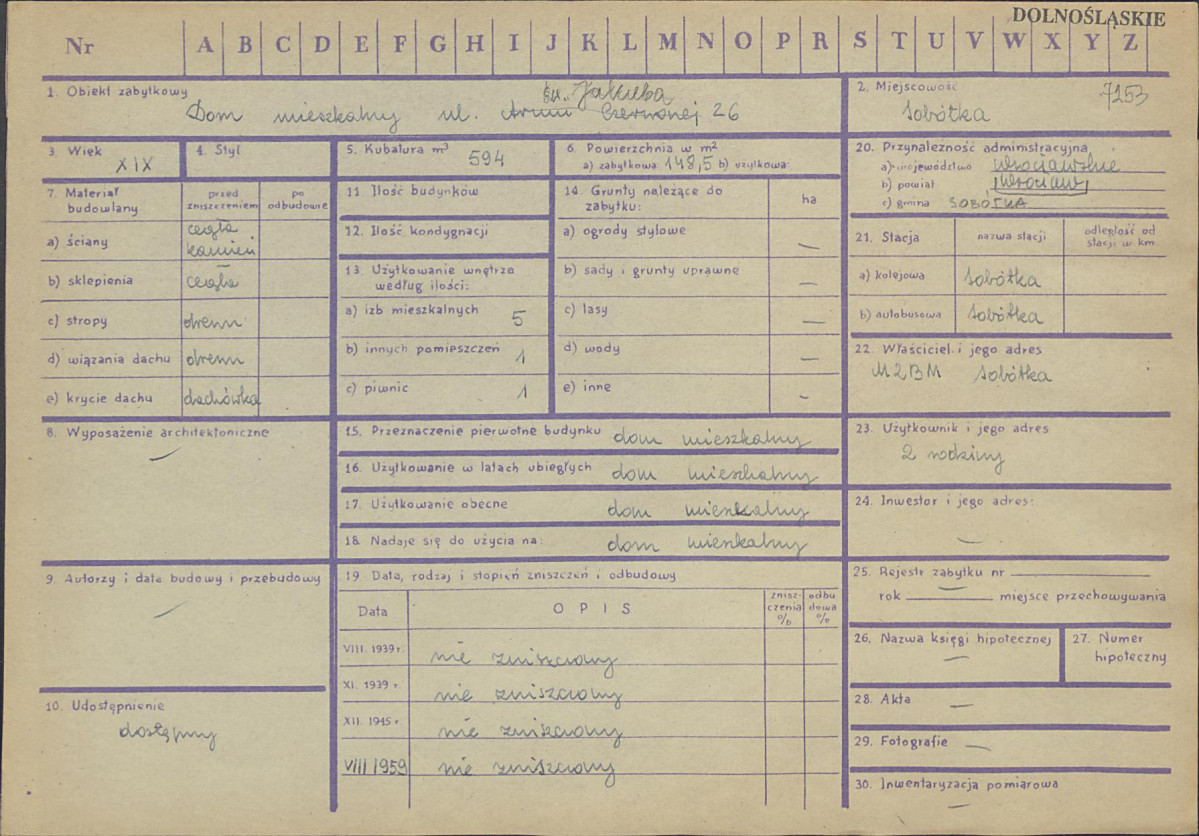 DOLNOŚLĄSKIE
Nr A B C D E F G H I J K L M N O P R S T U V W X Y Z
1. Obiekt zabytkowy
św. Jakuba
Dom mieszkalny ul. Armii Czerwonej 26
2. Miejscowość 7153
Sobótka
3. Wiek
XIX
4. Styl
5. Kubatura m³ 594
6. Powierzchnia w m²
a) zabytkowa 148,5 b) użytkowa:
7. Materiał budowlany
przed zniszczeniem
po odbudowie
a) ściany cegła kamień
b) sklepienia cegła
c) stropy drewn
d) wiązania dachu drewn
e) krycie dachu dachówka
8. Wyposażenie architektoniczne
—
9. Autorzy i data budowy i przebudowy
—
10. Udostępnienie
dostępny
11. Ilość budynków
12. Ilość kondygnacji
13. Użytkowanie wnętrza
według ilości:
a) izb mieszkalnych 5
b) innych pomieszczeń 1
c) piwnic 1
14. Grunty należące do
zabytku: ha
a) ogrody stylowe —
b) sady i grunty uprawne —
c) lasy —
d) wody —
e) inne —
15. Przeznaczenie pierwotne budynku dom mieszkalny
16. Użytkowanie w latach ubiegłych dom mieszkalny
17. Użytkowanie obecne dom mieszkalny
18. Nadaje się do użycia na: dom mieszkalny
19. Data, rodzaj i stopień zniszczeń i odbudowy
Data
OPIS
zniszczenia %
odbudowa %
VIII. 1939 r. nie zniszczony
XI. 1939 r. nie zniszczony
XII. 1945 r. nie zniszczony
VIII 1959 nie zniszczony
20. Przynależność administracyjna
a) województwo wrocławskie
b) powiat Wrocław
c) gmina SOBÓTKA
21. Stacja
nazwa stacji
odległość od stacji w km
a) kolejowa Sobótka
b) autobusowa Sobótka
22. Właściciel i jego adres
MZBM Sobótka
23. Użytkownik i jego adres
2 rodziny
24. Inwestor i jego adres:
—
25. Rejestr zabytku nr —
rok miejsce przechowywania
26. Nazwa księgi hipotecznej
—
27. Numer
hipoteczny
28. Akta —
29. Fotografie —
30. Inwentaryzacja pomiarowa
—